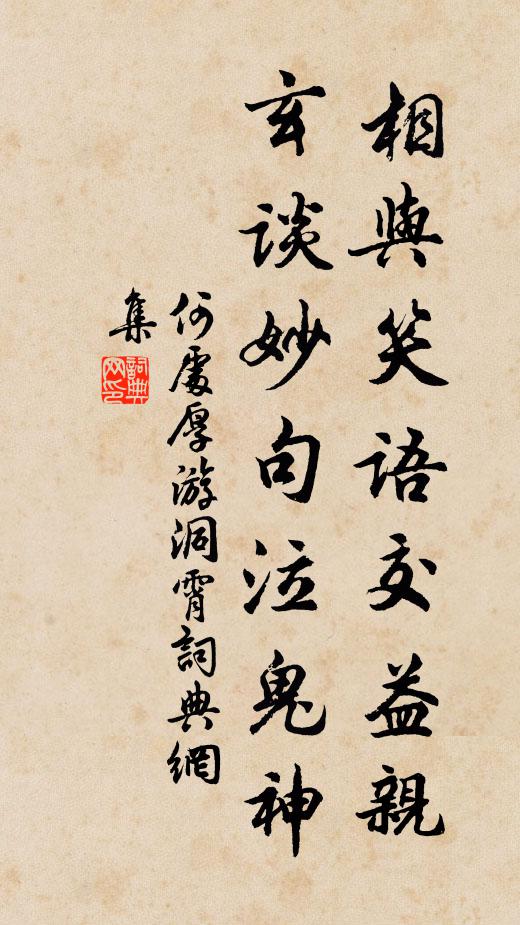 相與笑語交益親
玄談妙句泣鬼神
何處厚游洞霄詞典網
集
詞典
网印